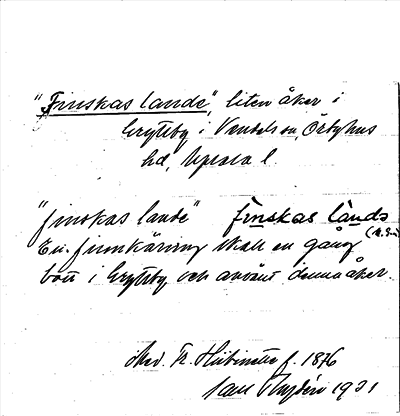 "Finskas lande", liten åker i
Gryttby i Vendels sn, Örbyhus
hd, Upsala l.
"finskas lande" finskas lands
En finnkäring skall en gång
bott i Gryttby och använt denna åker.
Med. R. Hübinette f. 1876
1931